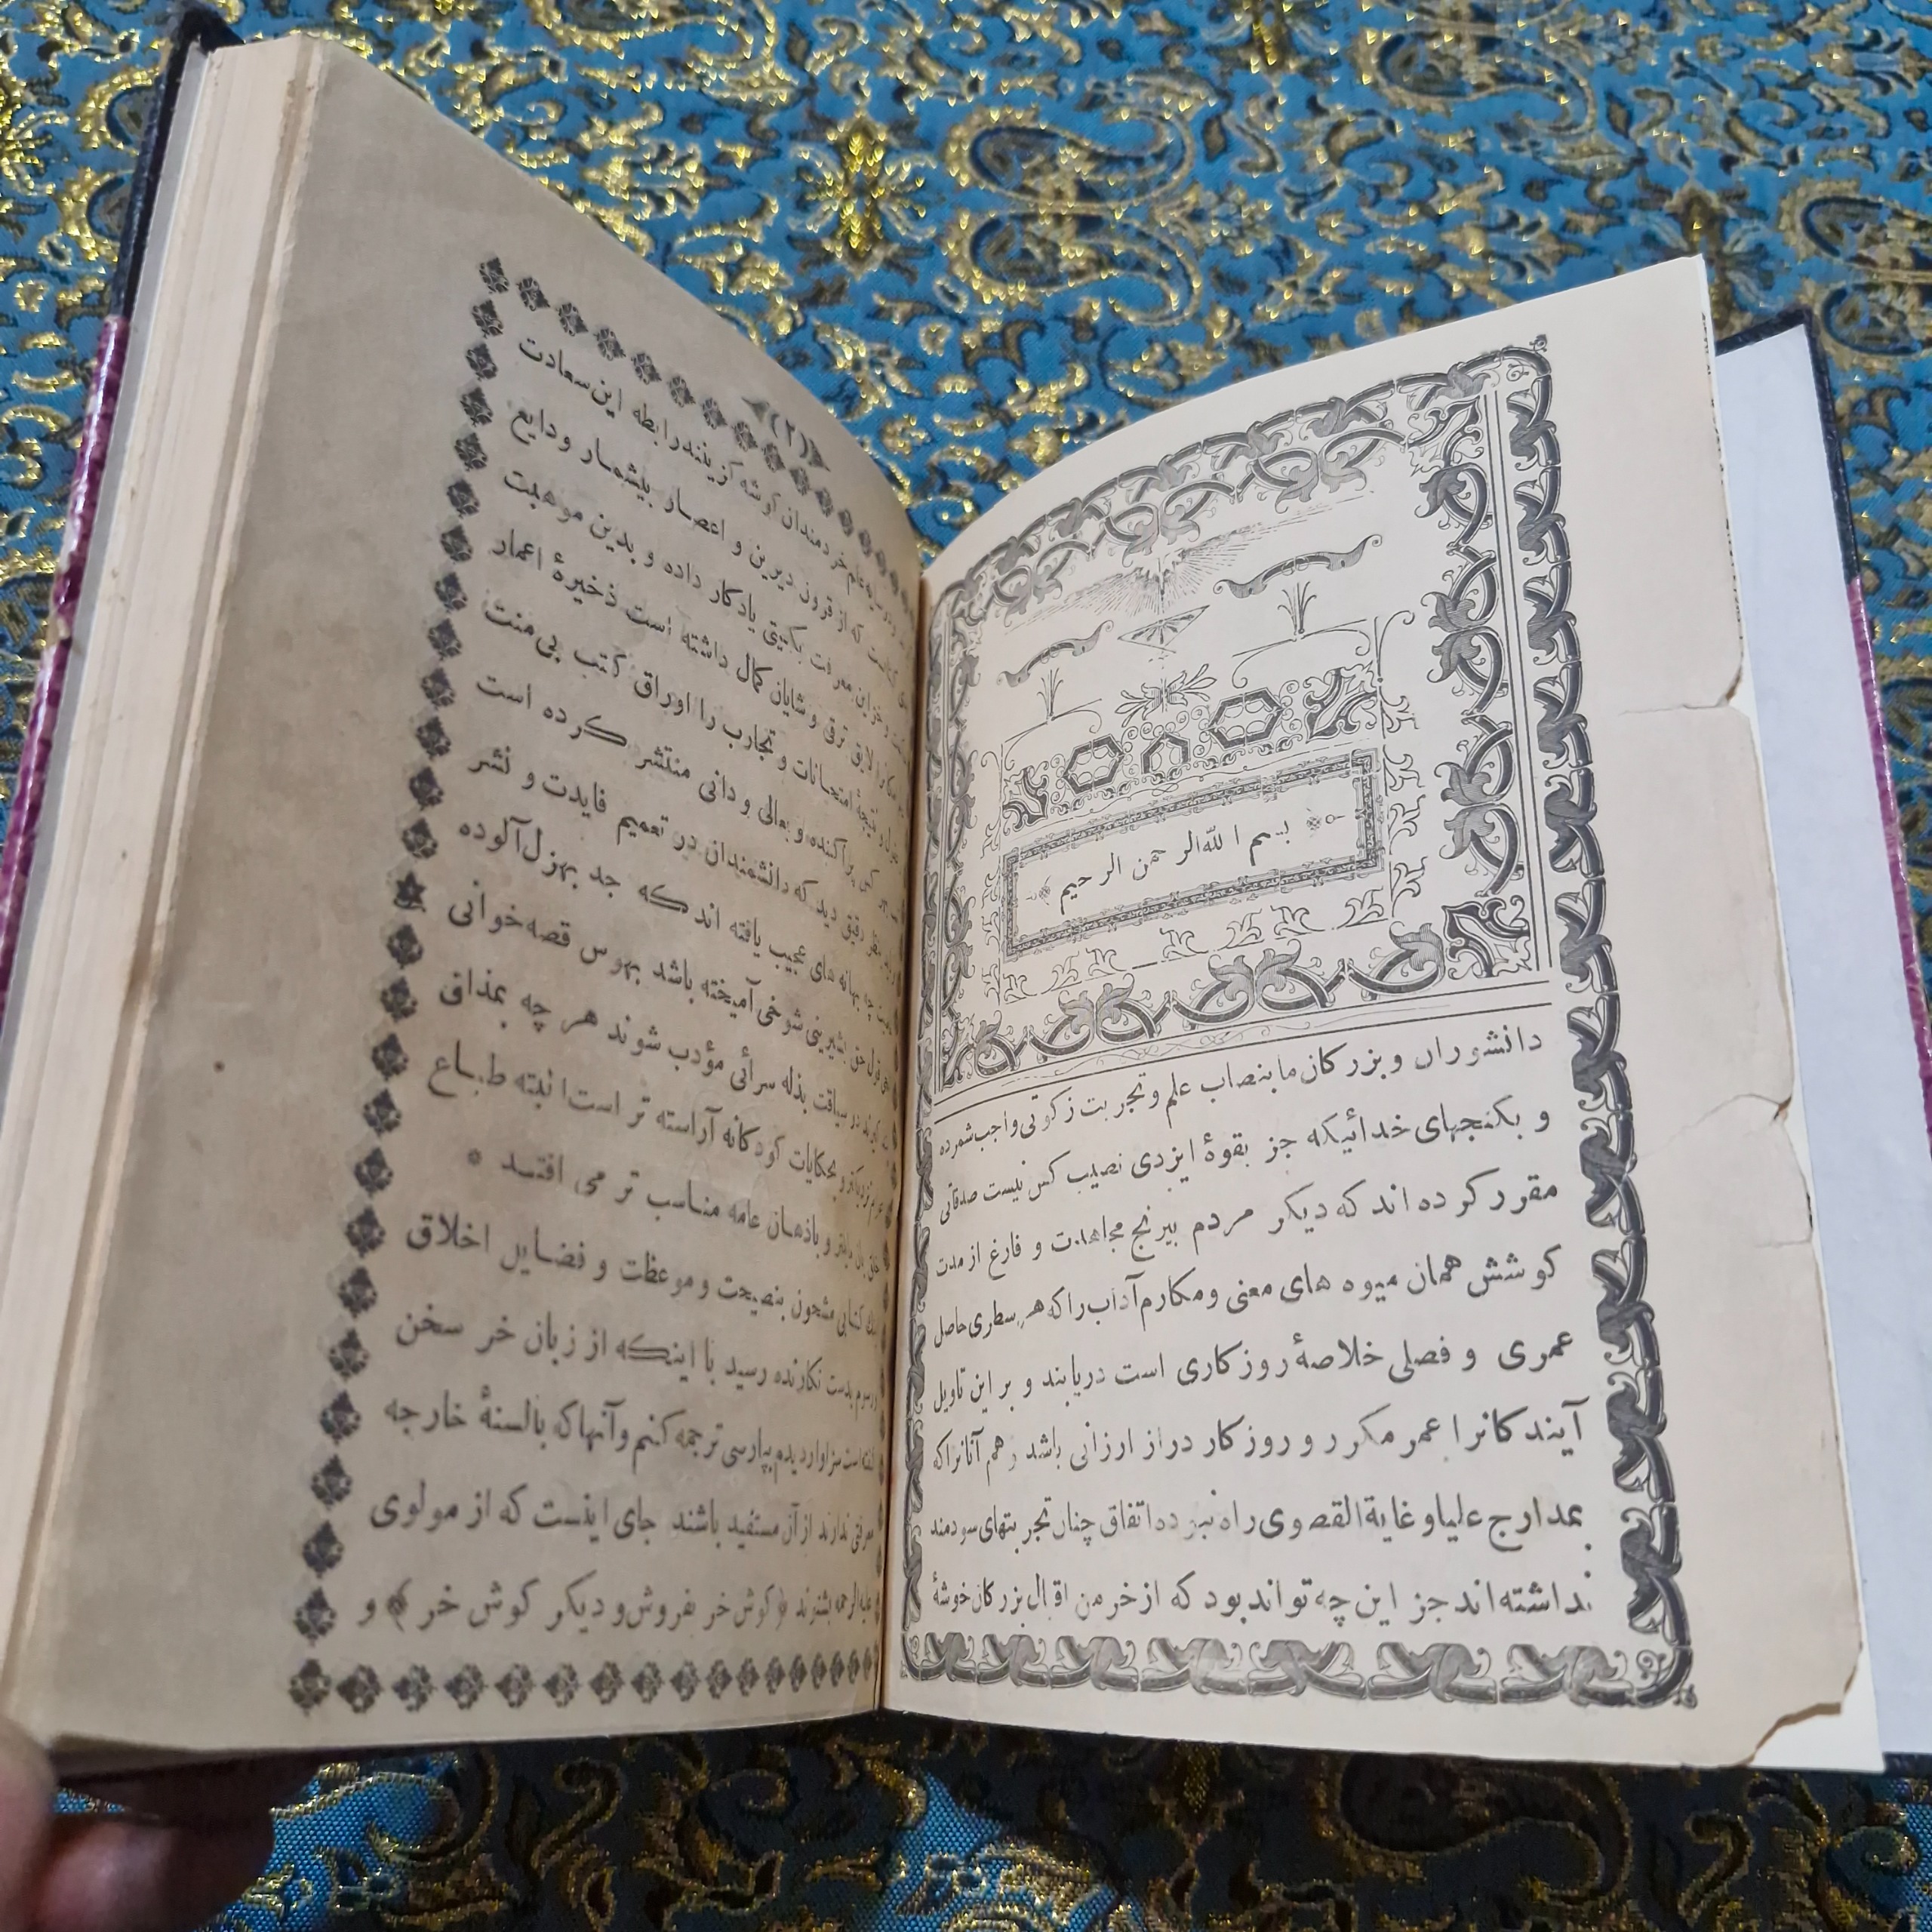 بسم الله الرحمن الرحیم
دانشوران و بزرکان ما بنصاب علم و تجربت زکوتی واجب شمرده
و بکنجهای خدائیکه جز بقوهٔ ایزدی نصیب کس نیست صدقاتی
مقرر کرده اند که دیکر مردم بیرنج مجاهدت و فارغ از مدت
کوشش همان میوه های معنی و مکارم آداب را که هر سطری حاصل
عمری و فصلی خلاصهٔ روزکاری است دریابند و بر این تاویل
آیندکانرا عمر مکرر و روزکار دراز ارزانی باشد و هم آنانرا که
بمدارج علیا و غایة القصوی راه نبرده اتفاق چنان تجربتهای سودمند
نداشته اند جز این چه تواند بود که از خرمن اقبال بزرکان خوشهٔ
(۲)
خردمندان کوشه کزینند رابطه این سعادت
که از قرون دیرین و اعصار بیشمار ودایع
معرفت بکیتی یادکار داده و بدین موهبت
لایق ترقی و شایان کمال داشته است ذخیرهٔ اعمار
و نتیجهٔ امتحانات و تجارب را اوراق کتب بی منت
پراکنده و بعالی و دانی منتشر کرده است
دقیق دید که دانشمندان در تعمیم فایدت و نشر
بهانه های عجیب یافته اند که جد بهزل آلوده
قول حق بشیرینی شوخی آمیخته باشد بهوس قصه خوانی
در سیاقت بذله سرائی مؤدب شوند هر چه بمذاق
بحکایات کودکانه آراسته تر است البته طباع
و باذهان عامه مناسب تر می افتد *
کتابی مشحون بنصیحت و موعظت و فضایل اخلاق
بدست نکارنده رسید با اینکه از زبان خر سخن
است سزاوار دیدم بپارسی ترجمه کنم و آنها که بالسنهٔ خارجه
معرفتی ندارند از آن مستفید باشند جای اینست که از مولوی
علیه الرحمه بشنوند ﴿کوش خر بفروش و دیکر کوش خر﴾ و